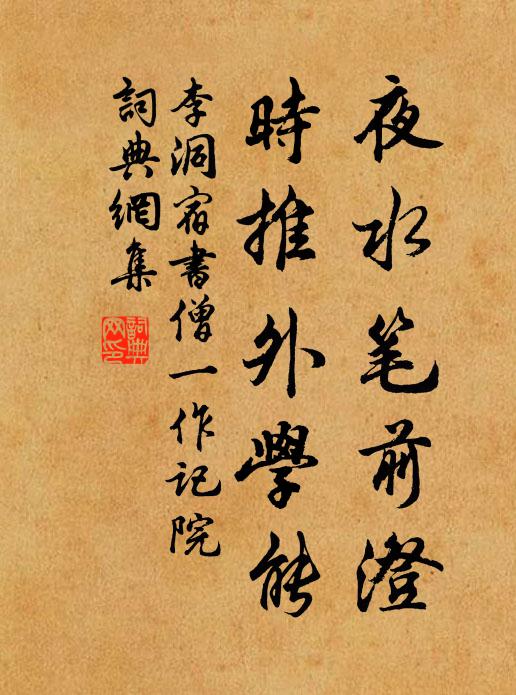 夜水笔前澄
時推外學能
李洞宿書僧一作記院
詞典網集
詞典網印